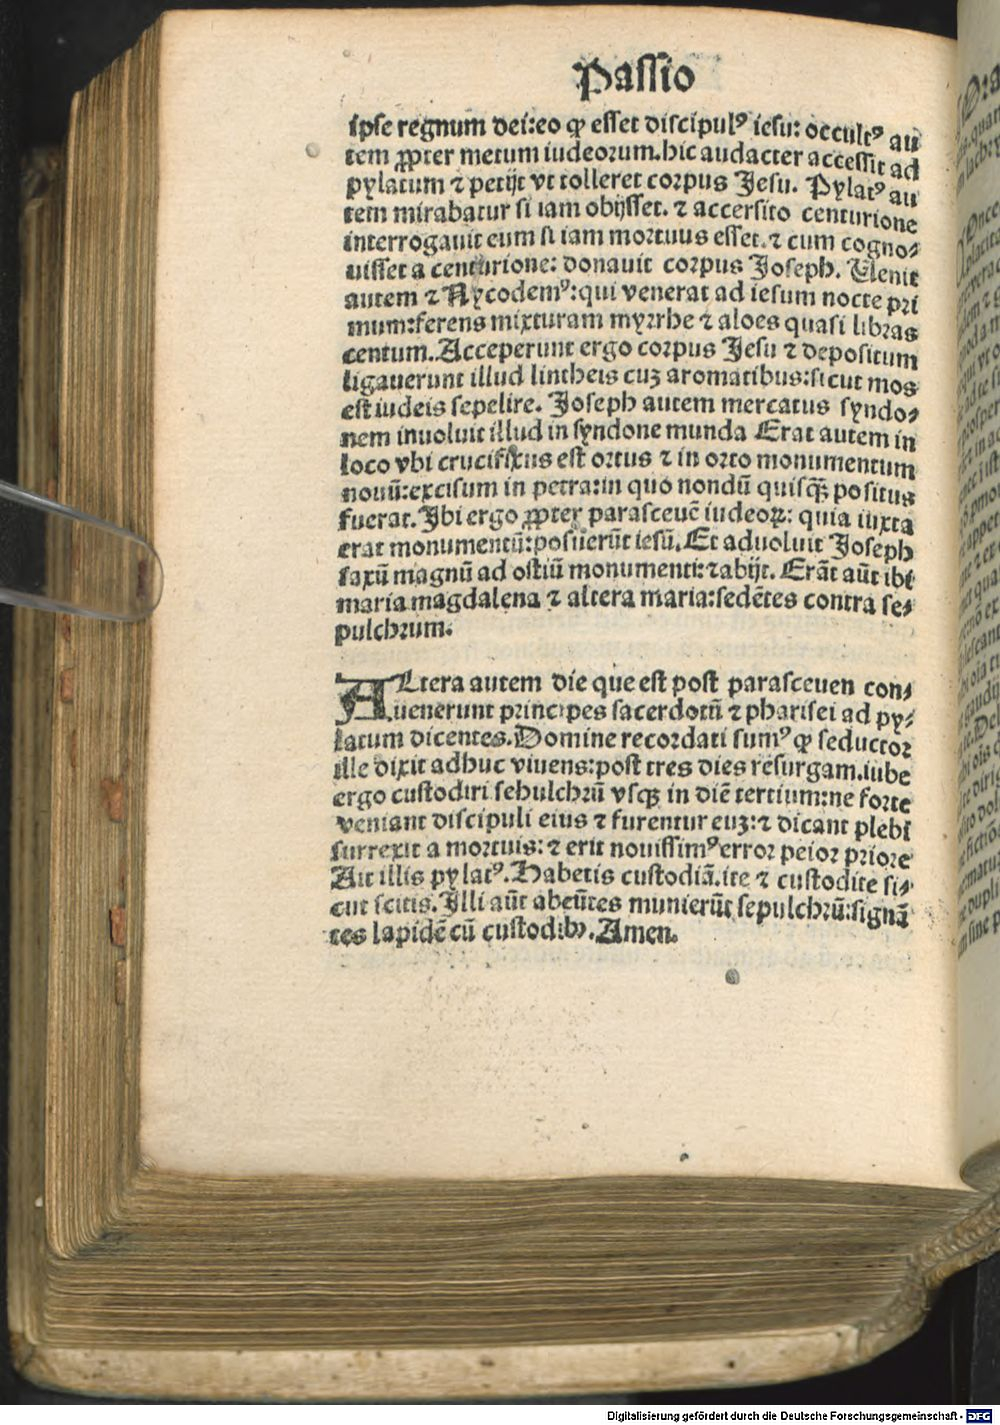 Passio
ipse regnum dei:eo ꝙ esset discipulꝰ iesu: occultꝰ au
tem ꝓpter metum iudeorum.hic audacter accessit ad
pylatum ⁊ petijt vt tolleret corpus Jesu. Pylatꝰ au
tem mirabatur si iam obijsset. ⁊ accersito centurione
interrogauit eum si iam mortuus esset.⁊ cum cogno⸗
uisset a centurione: donauit corpus Joseph. Uenit
autem ⁊ Nycodemꝰ:qui venerat ad iesum nocte pri
mum:ferens mixturam myrrhe ⁊ aloes quasi libras
centum.Acceperunt ergo corpus Jesu ⁊ depositum
ligauerunt illud lintheis cuꝫ aromatibus:sicut mos
est iudeis sepelire. Joseph autem mercatus syndo⸗
nem inuoluit illud in syndone munda Erat autem in
loco vbi crucifixus est ortus ⁊ in orto monumentum
nouū:excisum in petra:in quo nondū quisꝗ̈ positus
fuerat.Jbi ergo ꝓpter parasceuē iudeoꝝ: quia iuxta
erat monumentū:posuerūt iesū.Et aduoluit Joseph
saxū magnū ad ostiū monumenti:⁊abijt. Erāt aūt ibi
maria magdalena ⁊ altera maria:sedētes contra se⸗
pulchrum.
ALtera autem die que est post parasceuen con⸗
uenerunt principes sacerdotū ⁊ pharisei ad py⸗
latum dicentes.Domine recordati sumꝰ ꝙ seductor
ille dixit adhuc viuens:post tres dies resurgam.iube
ergo custodiri sehulchrū vsqꝫ in diē tertium:ne forte
veniant discipuli eius ⁊ furentur euꝫ:⁊ dicant plebi
surrexit a mortuis:⁊ erit nouissimꝰ error peior priore
Ait illis pylatꝰ.Habetis custodiā.ite ⁊ custodite si⸗
cut scitis.Jlli aūt abeūtes munierūt sepulchrū:signā
tes lapidē cū custodibꝰ.Amen.
Digitalisierung gefördert durch die Deutsche Forschungsgemeinschaft - DFG